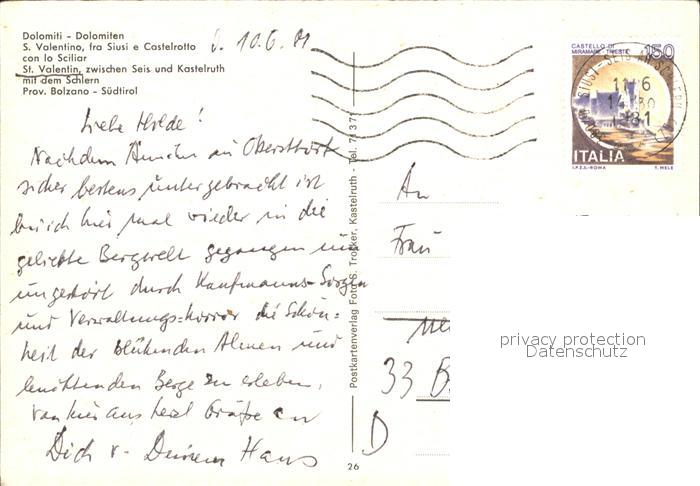 Dolomiti - Dolomiten
S. Valentino, fra Siusi e Castelrotto
con lo Sciliar
St. Valentin, zwischen Seis und Kastelruth
mit dem Schlern
Prov. Bolzano - Südtirol
10.6.81
Liebe Hilde!
Nachdem in Oberstdorf
sicher bestens untergebracht ist
bin ich hier mal wieder in die
geliebte Bergwelt gegangen um
ungestört durch Kaufmanns-Sorgen
und Verwaltungs-horror die Schön=
heit der blühenden Almen und
leuchtenden Berge zu erleben.
Von hier aus herzl Grüße an
Dich v. Deinem Hans
Postkartenverlag Foto S. Trocker, Kastelruth - Tel. 71371
26
CASTELLO DI
MIRAMARE - TRIESTE
150
ITALIA
I.P.Z.S.-ROMA T. MELE
SIUSI - SEIS
An
Frau
33 B
D
privacy protection
Datenschutz